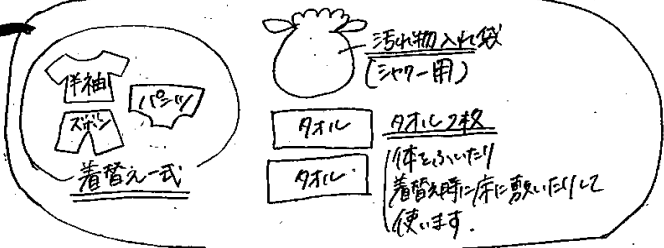 半袖
パンツ
ズボン
着替え一式
汚れ物入れ袋
(シャワー用)
タオル
タオル
タオル2枚
体をふいたり
着替え時に床に敷いたりして
使います.